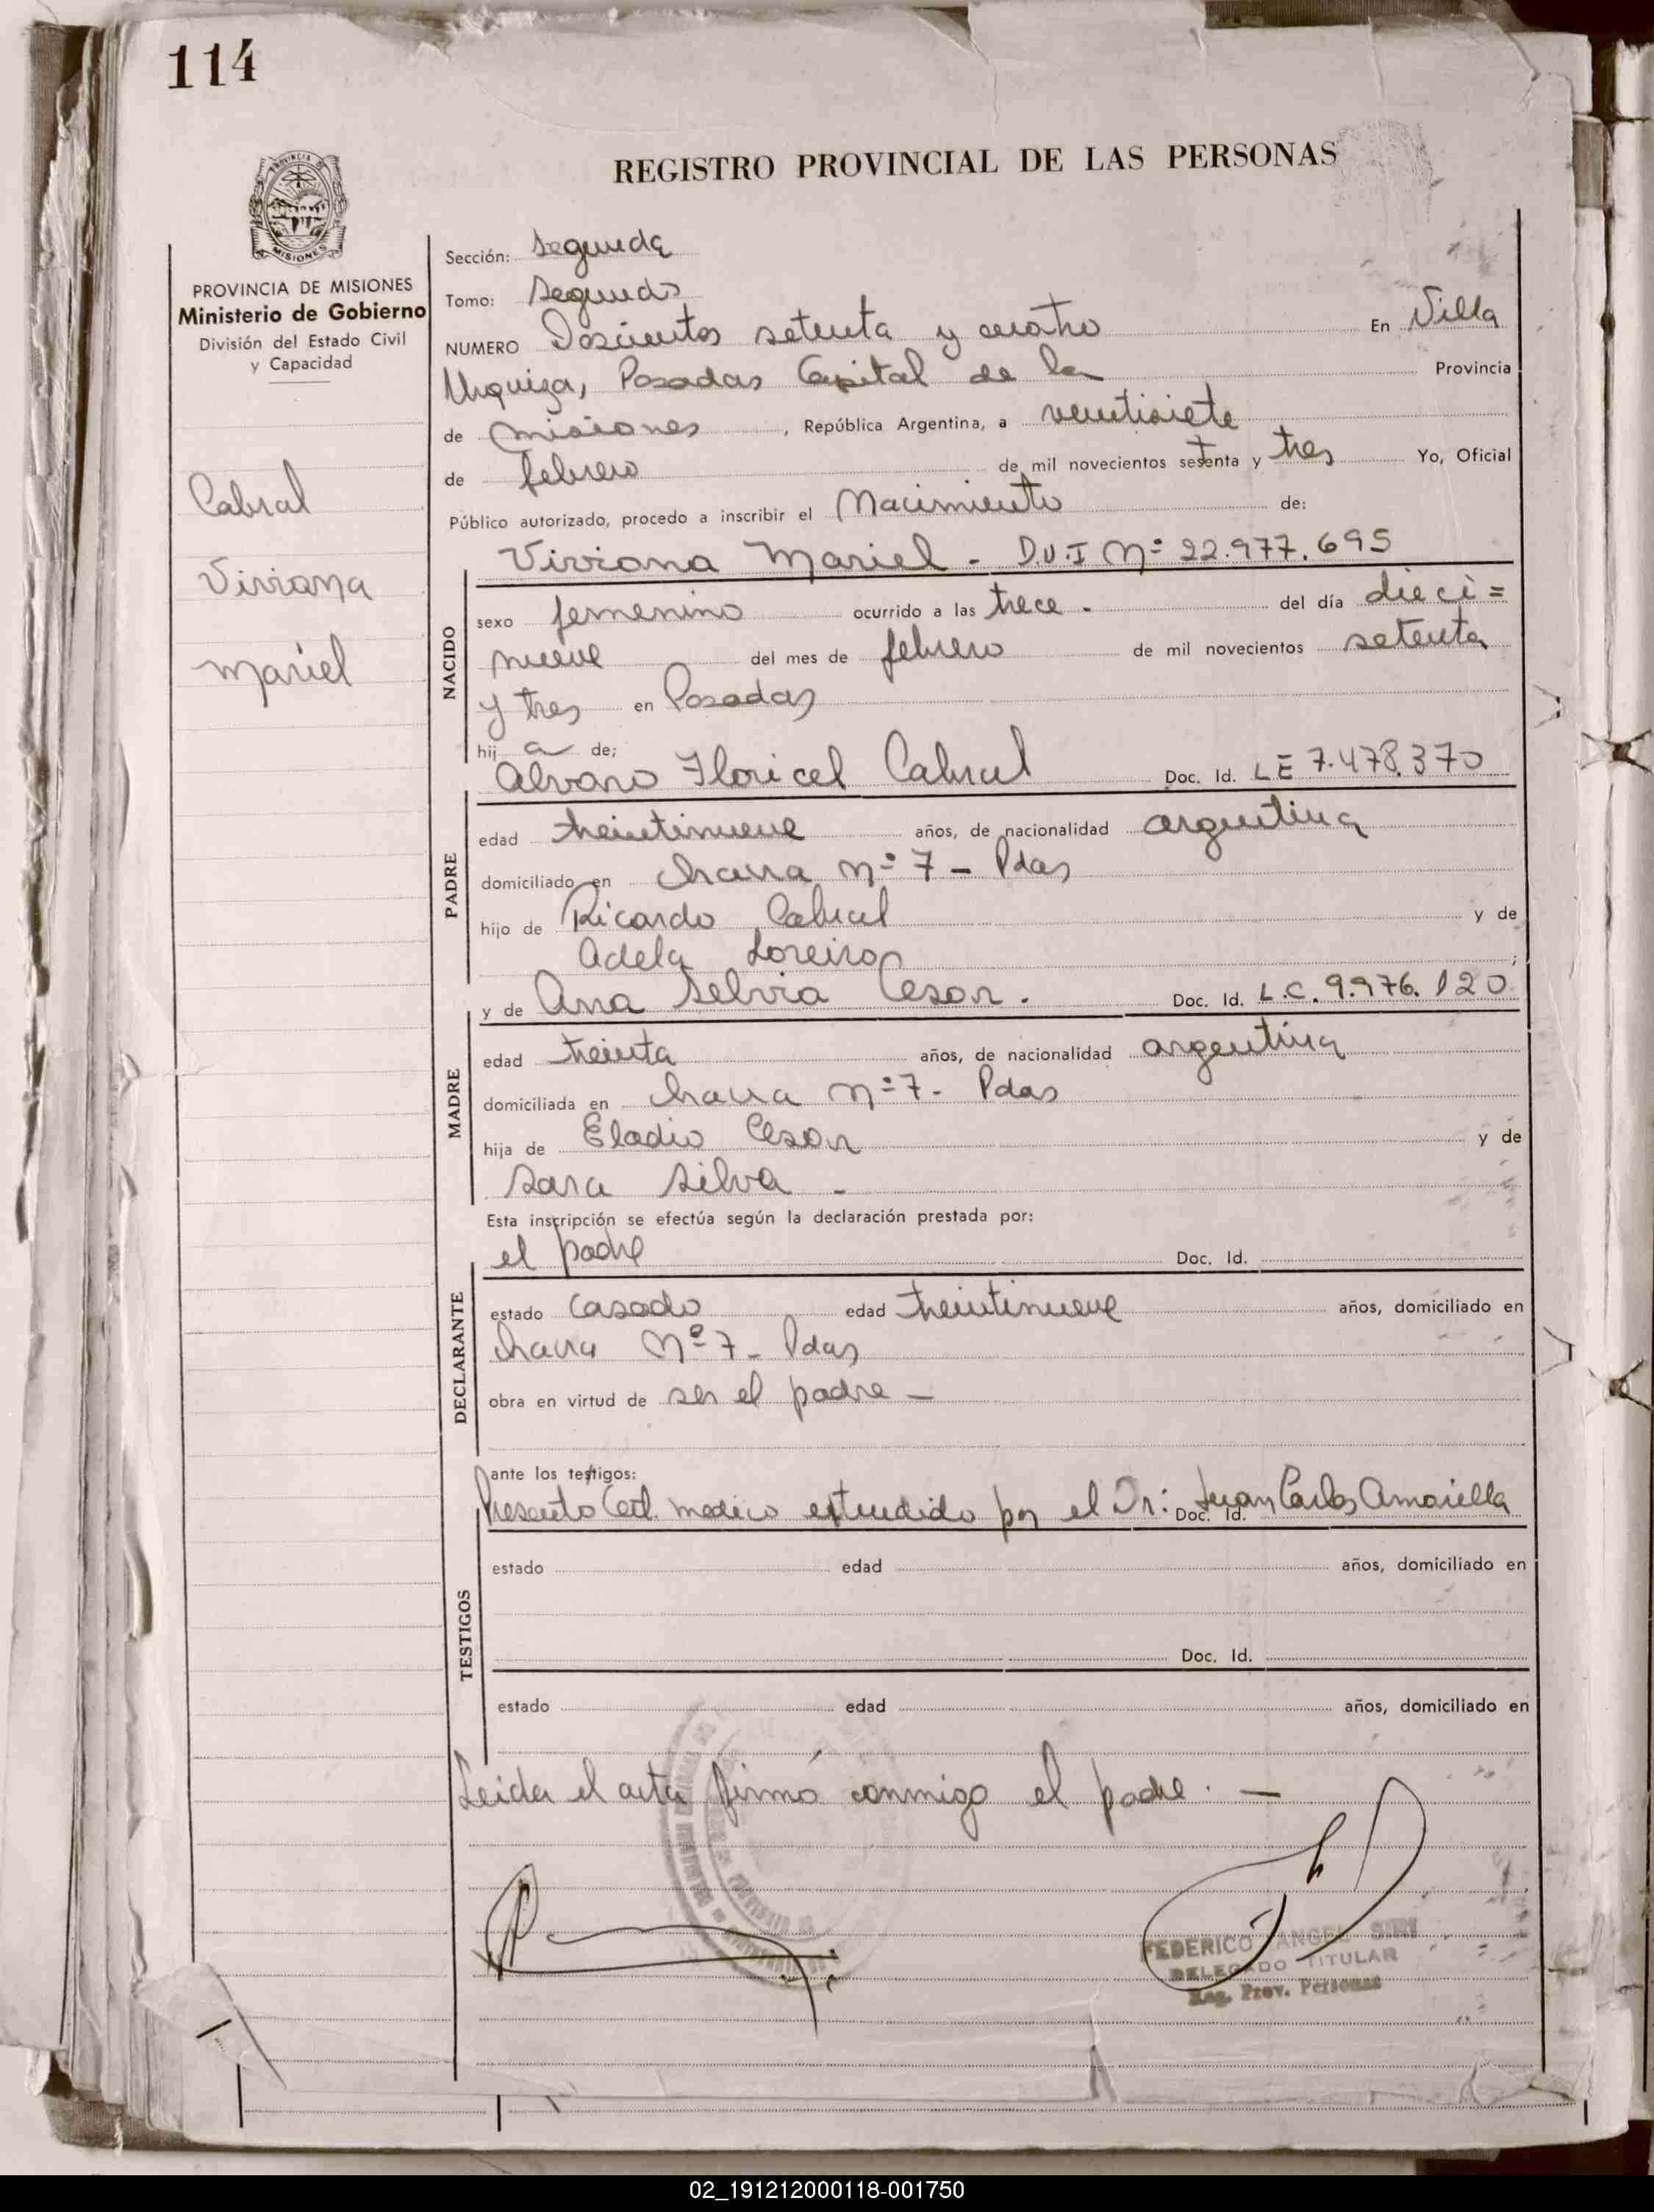 114
REGISTRO PROVINCIAL DE LAS PERSONAS
PROVINCIA DE MISIONES
Ministerio de Gobierno
División del Estado Civil
y Capacidad
Cabral
Viviana
Mariel
Sección: Segunda
Tomo: Segundo
NUMERO Doscientos setenta y cuatro En Villa
Urquiza, Posadas Capital de la Provincia
de Misiones, República Argentina, a veintisiete
de febrero de mil novecientos setenta y tres Yo, Oficial
Público autorizado, procedo a inscribir el Nacimiento de:
Viviana Mariel - D.U.I Nº 22.977.695
NACIDO
sexo femenino ocurrido a las trece. del día dieci=
nueve del mes de febrero de mil novecientos setenta
y tres en Posadas
hij a de;
Alvaro Floricel Cabral Doc. Id. LE 7.478.370
PADRE
edad treintinueve años, de nacionalidad argentina
domiciliado en chacra nº 7 - Pdas
hijo de Ricardo Cabral y de
Adela Loreiro ;
y de Ana Selvia Cesar. Doc. Id. L.C. 9.976.120
MADRE
edad treinta años, de nacionalidad argentina
domiciliada en chacra nº 7 - Pdas
hija de Eladio Cesar y de
Sara Silva -
Esta inscripción se efectúa según la declaración prestada por:
el padre Doc. Id.
DECLARANTE
estado casado edad treintinueve años, domiciliado en
chacra Nº 7 - Pdas
obra en virtud de ser el padre -
ante los testigos:
Presento Cert. medico extendido por el Dr: Juan Carlos Amarilla Doc. Id.
TESTIGOS
estado edad años, domiciliado en
Doc. Id.
estado edad años, domiciliado en
Leida el acta firmó conmigo el padre. -
FEDERICO ANGEL SIRI
DELEGADO TITULAR
Reg. Prov. Personas
02_191212000118-001750